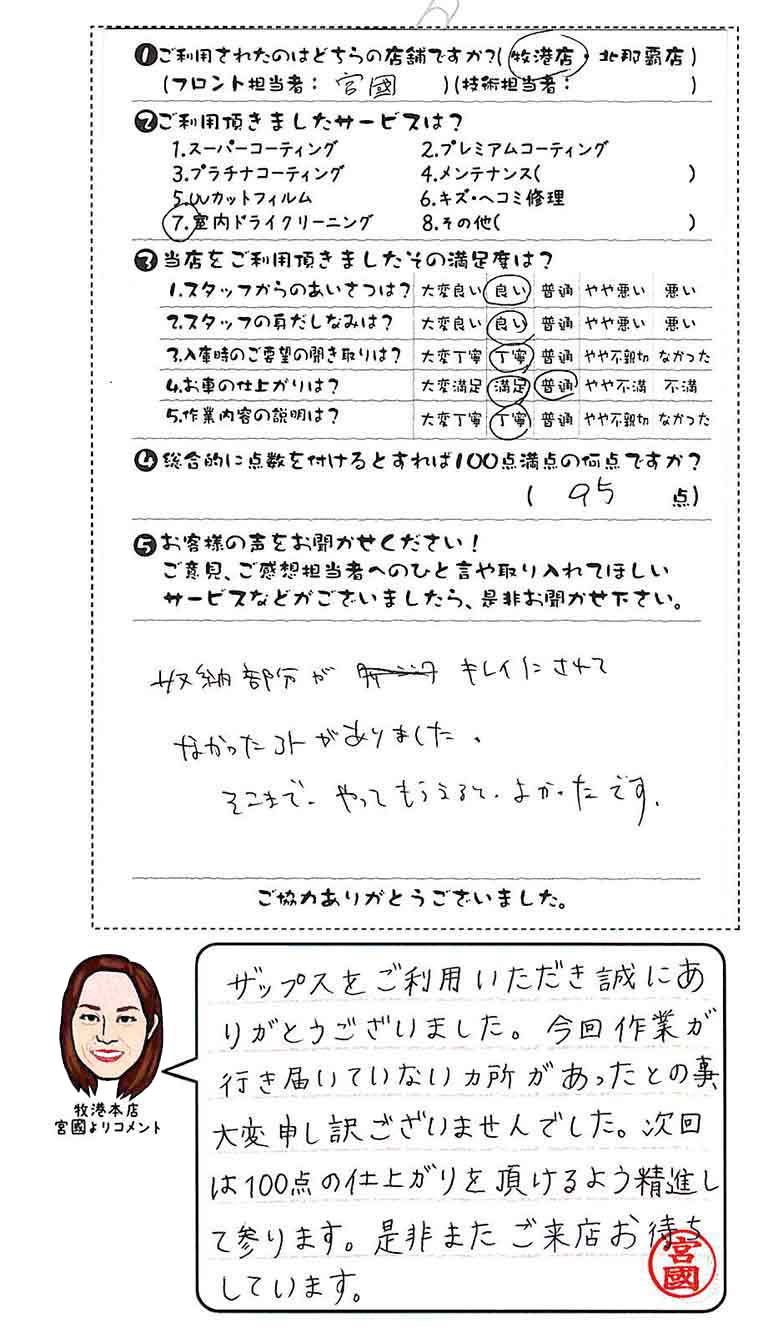 ❶ご利用されたのはどちらの店舗ですか?(牧港店・北那覇店)
(フロント担当者: 宮國 )(技術担当者: )
❷ご利用頂きましたサービスは?
1.スーパーコーティング 2.プレミアムコーティング
3.プラチナコーティング 4.メンテナンス( )
5.UVカットフィルム 6.キズ・ヘコミ修理
7.室内ドライクリーニング 8.その他( )
❸当店をご利用頂きましたその満足度は?
1.スタッフからのあいさつは? 大変良い 良い 普通 やや悪い 悪い
2.スタッフの身だしなみは? 大変良い 良い 普通 やや悪い 悪い
3.入庫時のご要望の聞き取りは? 大変丁寧 丁寧 普通 やや不親切 なかった
4.お車の仕上がりは? 大変満足 満足 普通 やや不満 不満
5.作業内容の説明は? 大変丁寧 丁寧 普通 やや不親切 なかった
❹総合的に点数を付けるとすれば100点満点の何点ですか?
( 95 点)
❺お客様の声をお聞かせください!
ご意見、ご感想担当者へのひと言や取り入れてほしい
サービスなどがございましたら、是非お聞かせ下さい。
収納部分が キレイにされて
なかったコトがありました。
そこまで、やってもらえると、よかったです。
ご協力ありがとうございました。
ザップスをご利用いただき誠にあ
りがとうございました。今回作業が
行き届いていないカ所があったとの事
大変申し訳ございませんでした。次回
は100点の仕上がりを頂けるよう精進し
て参ります。是非またご来店お待ち
しています。
宮國
牧港本店
宮國よりコメント